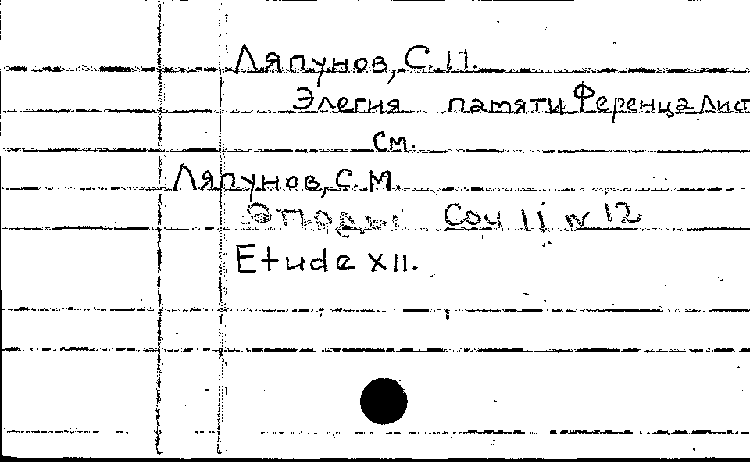 Ляпунов, С. П.
Элегия памяти Ференца Лист
см.
Ляпунов, С. М.
Этюды Соч 11 № 12
Etude XII.